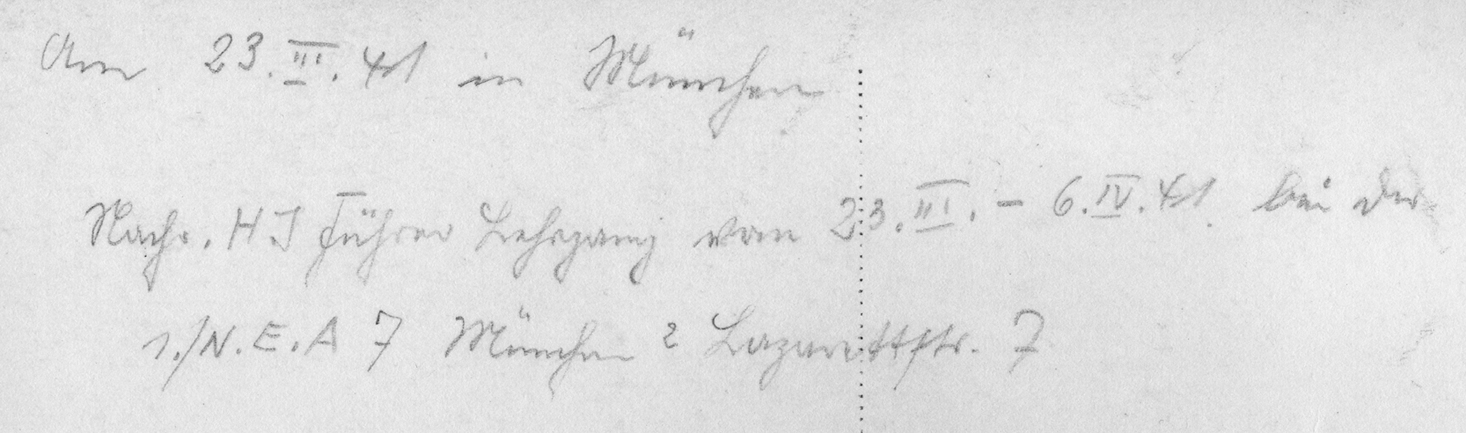 Am 23.III.41 in München
Nachr. HJ Führer Lehrgang vom 23.III. – 6.IV.41. bei der
1./N.E.A 7 München 2 Lazarettstr. 7